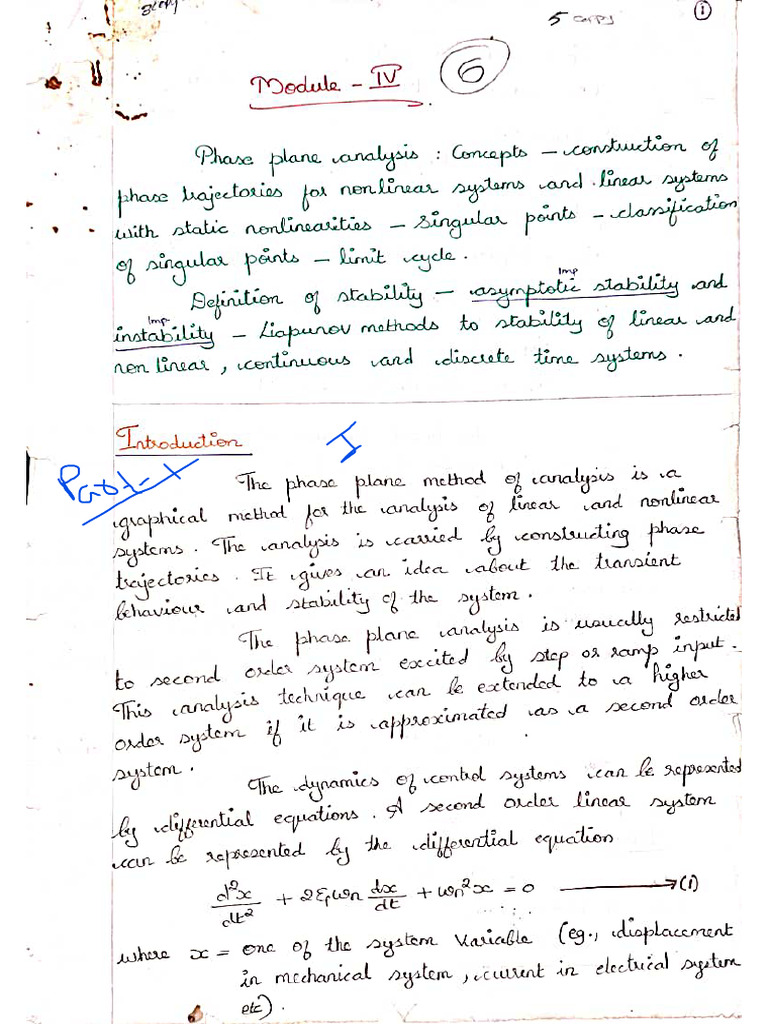 5 copy
1
Module - IV 6
Phase plane analysis : Concepts - construction of
phase trajectories for nonlinear systems and linear systems
with static nonlinearities - Singular points - classification
of singular points - limit cycle.
Imp
Definition of stability - asymptotic stability and
Imp
instability - Liapunov methods to stability of linear and
non linear, continuous and discrete time systems.
Introduction I
Part-I
The phase plane method of analysis is a
graphical method for the analysis of linear and nonlinear
systems. The analysis is carried by constructing phase
trajectories. It gives an idea about the transient
behaviour and stability of the system.
The phase plane analysis is usually restricted
to second order system excited by step or ramp input.
This analysis technique can be extended to a higher
order system if it is approximated as a second order
system.
The dynamics of control systems can be represented
by differential equations. A second order linear system
can be represented by the differential equation
d²x/dt² + 2ξωn dx/dt + ωn²x = 0 → (1)
where x = one of the system variable (eg., displacement
in mechanical system, current in electrical system
etc).